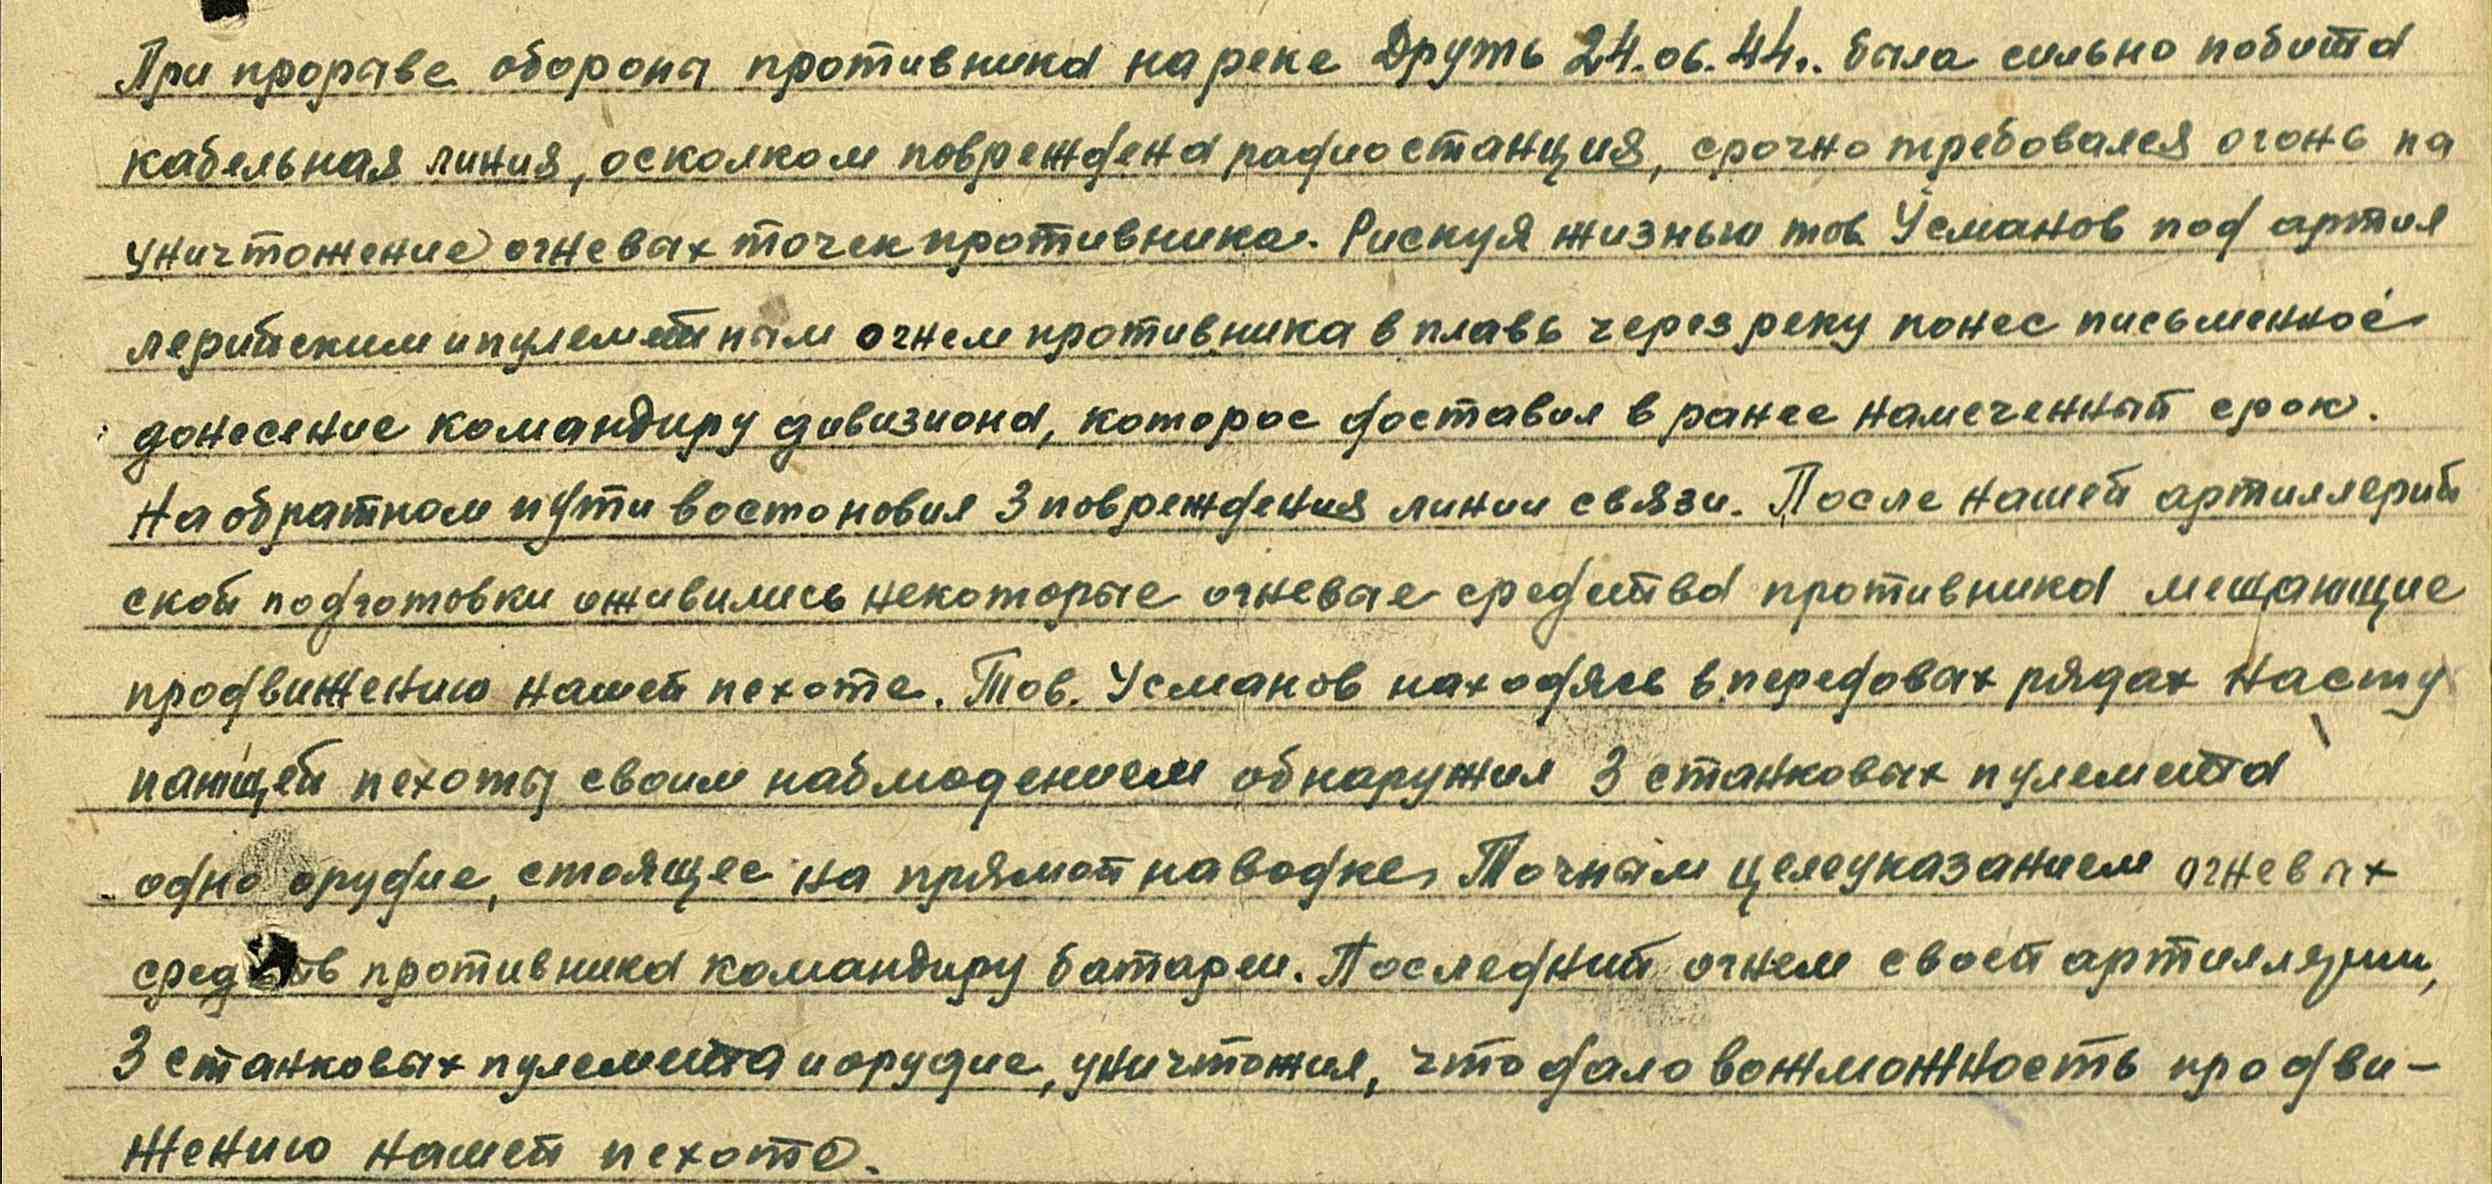 При прорыве обороны противника на реке Друть 24.06.44г. была сильно побита
кабельная линия, осколком повреждена радиостанция, срочно требовался огонь на
уничтожение огневых точек противника. Рискуя жизнью тов. Усманов под артил
лерийским и пулеметным огнем противника в плавь через реку понес письменное
донесение командиру дивизиона, которое доставил в ранее намеченный срок.
На обратном пути востоновил 3 повреждения линии связи. После нашей артиллерий
ской подготовки оживились некоторые огневые средства противника мешающие
продвижению нашей пехоте. Тов. Усманов находясь в передовых рядах насту
пающей пехоты своим наблюдением обнаружил 3 станковых пулемета
одно орудие, стоящее на прямой наводке. Точным целеуказанием огневых
средств противника командиру батареи. Последний огнем своей артиллерии,
3 станковых пулемета и орудие, уничтожил, что дало вожможность продви-
жению нашей пехоте.